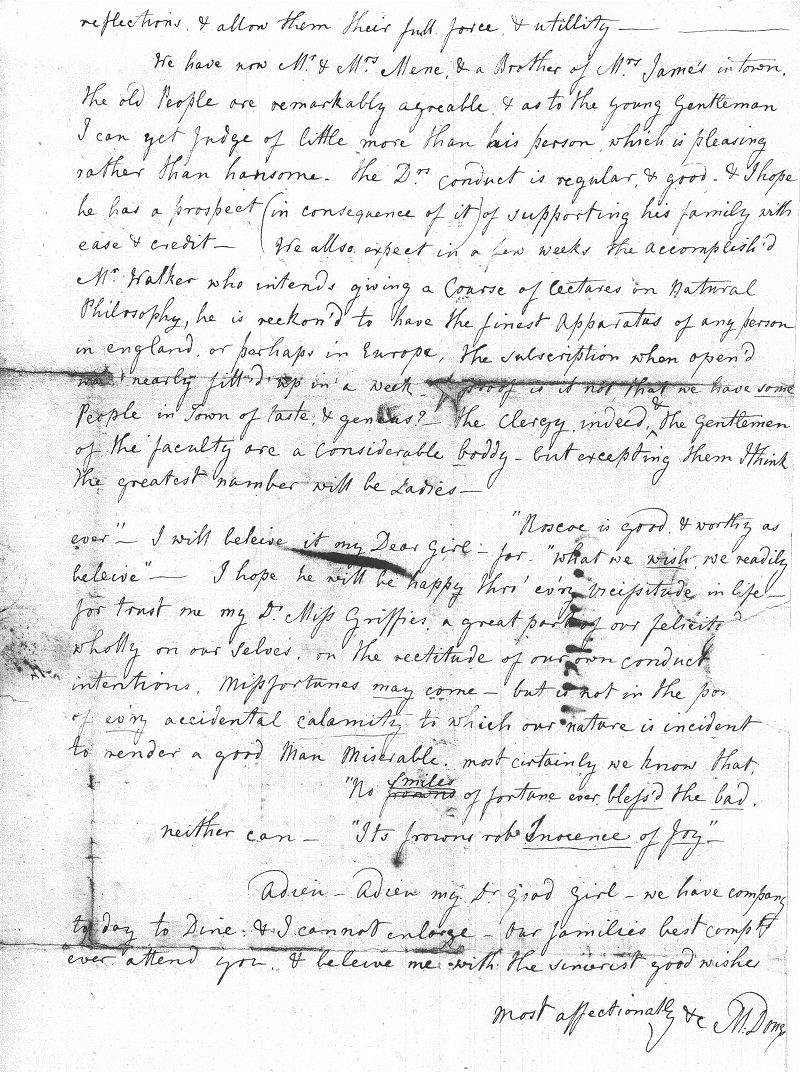 reflections, & allow them their full force, & utillity —
We have now Mr. & Mrs Mene, & a Brother of Mrs James in town.
the old People are remarkably agreable & as to the young Gentleman
I can yet Judge of little more than his person, which is pleasing
rather than hansome. the Drs conduct is regular, & good. & I hope
he has a prospect (in consequence of it) of supporting his family with
ease & credit — We allso expect in a few weeks the accomplish'd
Mr Walker who intends giving a Course of lectures on Natural
Philosophy, he is reckon'd to have the finest Apparatus of any person
in england, or perhaps in Europe, the subscription when open'd
was nearly fill'd up in a week proof is it not that we have some
People in Town of taste, & genius? — the Clergy indeed, & the Gentlemen
of the faculty are a Considerable boddy — but excepting them I think
the greatest number will be Ladies —
"Roscoe is good, & worthy as
ever" — I will beleive it my Dear Girl — for "what we wish, we readily
beleive" — I hope he will be happy thro' ev'ry vicissitude in life —
for trust me my Dr Miss Griffies, a great part of our felicity
wholly on our selves, on the rectitude of our own conduct
intentions, Missfortunes may come — but is not in the po
of ev'ry accidental calamity to which our nature is incident
to render a good Man Miserable. most certainly we know that,
"No frowns smiles of fortune ever bless'd the bad.
neither can — "Its frowns rob Inocence of Joy" —
Adieu — Adieu my Dr good Girl — we have company
to day to Dine, & I cannot enlarge — Our families best compts
ever attend you, & beleive me with the sincerist good wishes
most affectionatly &c M. Done